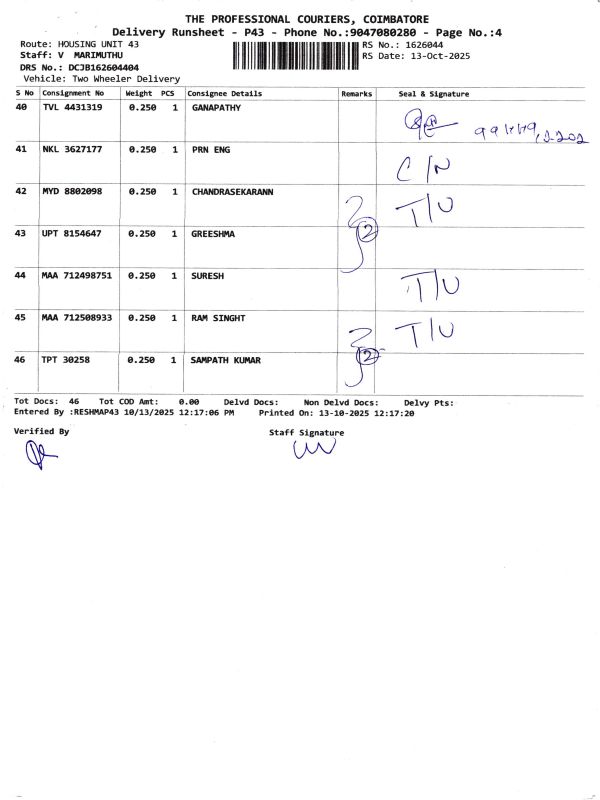 THE PROFESSIONAL COURIERS, COIMBATORE
Delivery Runsheet - P43 - Phone No.:9047080280 - Page No.:4
Route: HOUSING UNIT 43 RS No.: 1626044
Staff: V MARIMUTHU RS Date: 13-Oct-2025
DRS No.: DCJB162604404
Vehicle: Two Wheeler Delivery
S No Consignment No Weight PCS Consignee Details Remarks Seal & Signature
40 TVL 4431319 0.250 1 GANAPATHY
41 NKL 3627177 0.250 1 PRN ENG C/N
42 MYD 8802098 0.250 1 CHANDRASEKARANN T/U
43 UPT 8154647 0.250 1 GREESHMA 2
44 MAA 712498751 0.250 1 SURESH T/U
45 MAA 712508933 0.250 1 RAM SINGHT T/U
46 TPT 30258 0.250 1 SAMPATH KUMAR 2
Tot Docs: 46 Tot COD Amt: 0.00 Delvd Docs: Non Delvd Docs: Delvy Pts:
Entered By :RESHMAP43 10/13/2025 12:17:06 PM Printed On: 13-10-2025 12:17:20
Verified By Staff Signature